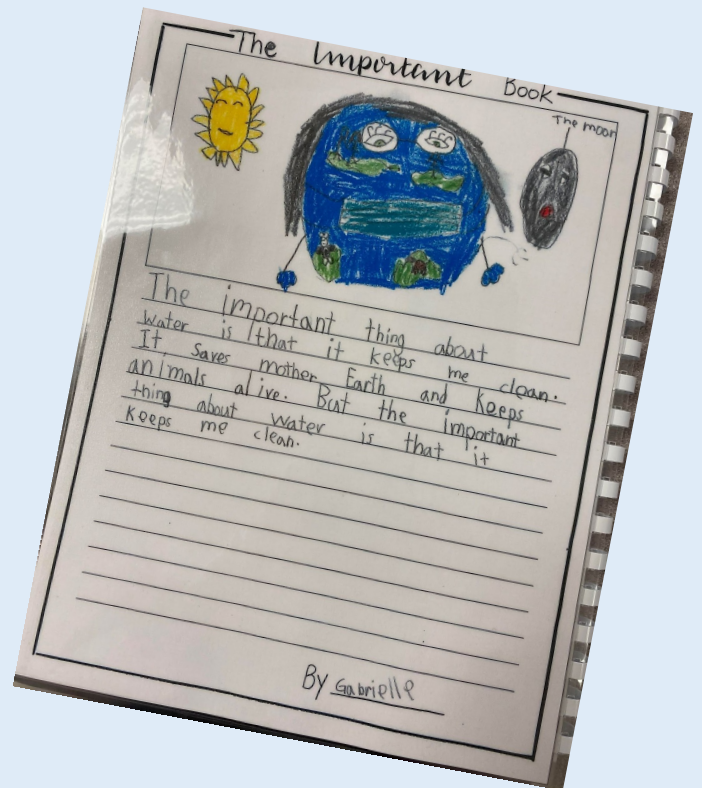 The Important Book
The moon
The important thing about
water is that it keeps me clean.
It saves mother Earth and keeps
animals alive. But the important
thing about water is that it
keeps me clean.
By Gabrielle